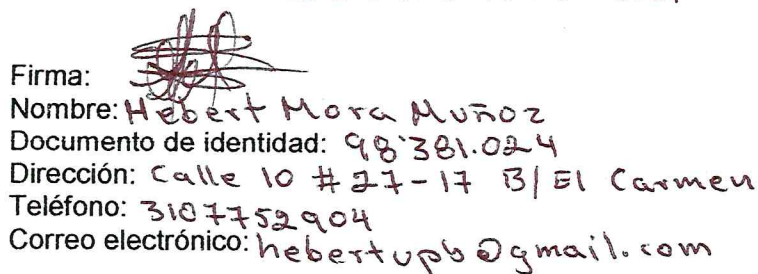 Firma:
Nombre: Hebert Mora Muñoz
Documento de identidad: 98'381.024
Dirección: Calle 10 # 27-17 B/ El Carmen
Teléfono: 3107752904
Correo electrónico: hebertupb@gmail.com